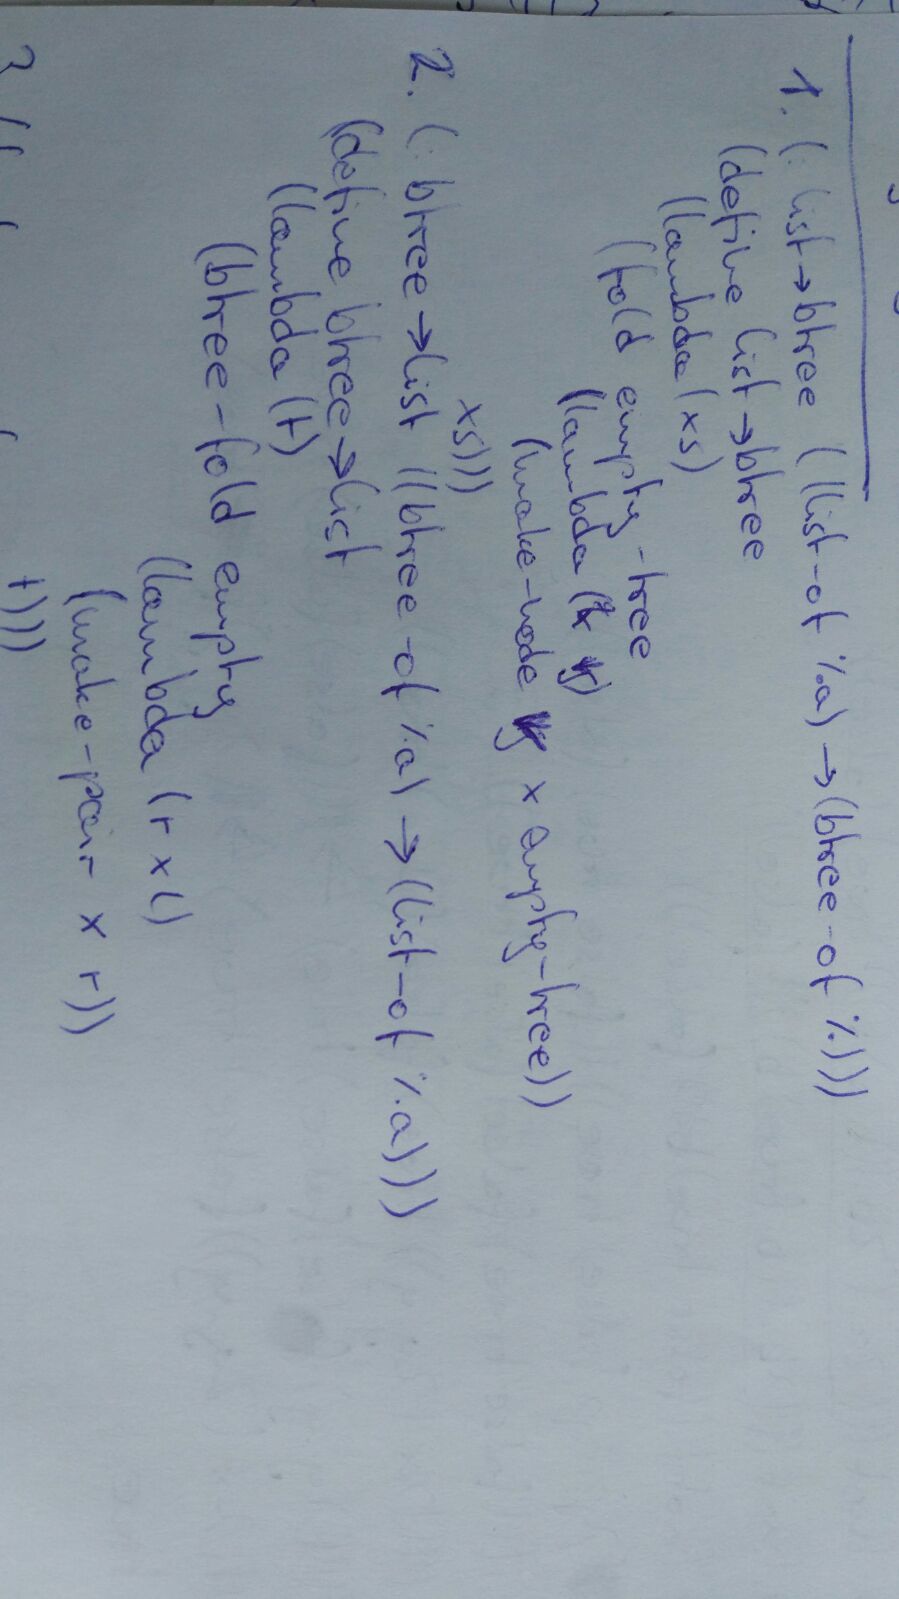 1. (: list→btree ((list-of %a) → (btree-of %)))
(define list→btree
(lambda (xs)
(fold empty-tree
(lambda (x y)
(make-node y x empty-tree))
xs)))
2. (: btree→list ((btree-of %a) → (list-of %a)))
(define btree→list
(lambda (t)
(btree-fold empty
(lambda (r x l)
(make-pair x r))
t)))